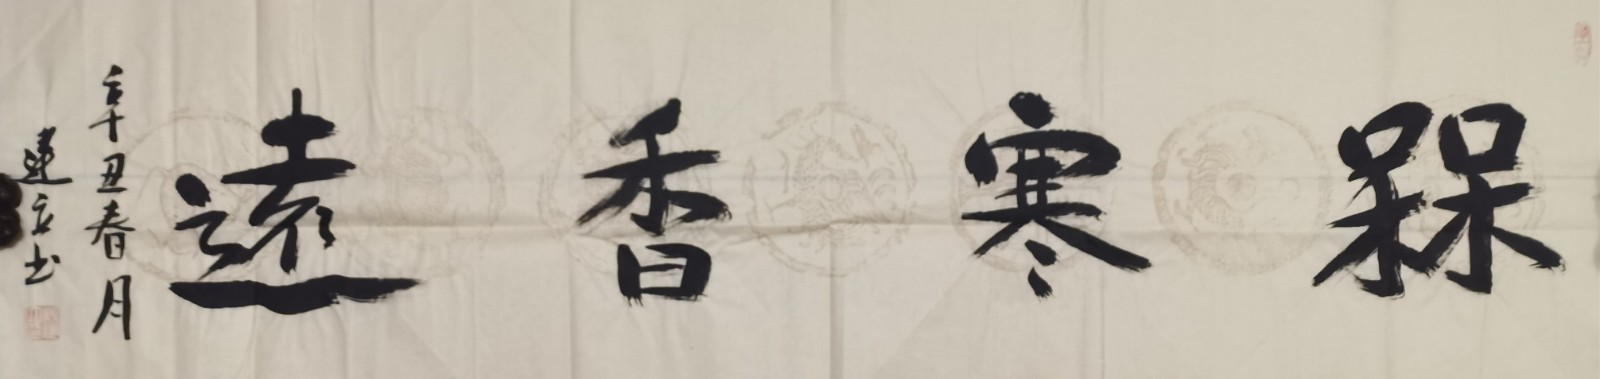 槑寒香遠
辛丑春月
建宏书